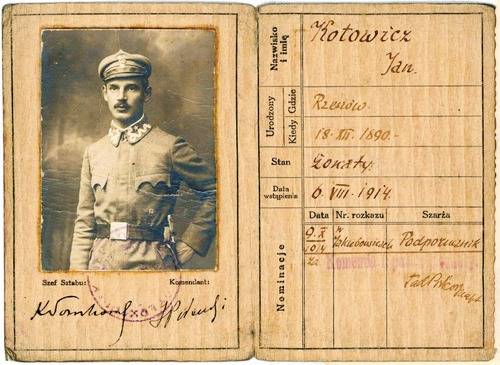 Szef Sztabu: Komendant:
Nazwisko i imię
Kotowicz
Jan.
Urodzony
Kiedy Gdzie
Rzezów.
18. XII. 1890.-
Stan
żonaty.
Data wstąpienia
6. VIII. 1914.
Nominacje
Data Nr. rozkazu Szarża
9. X 1914 Podporucznik